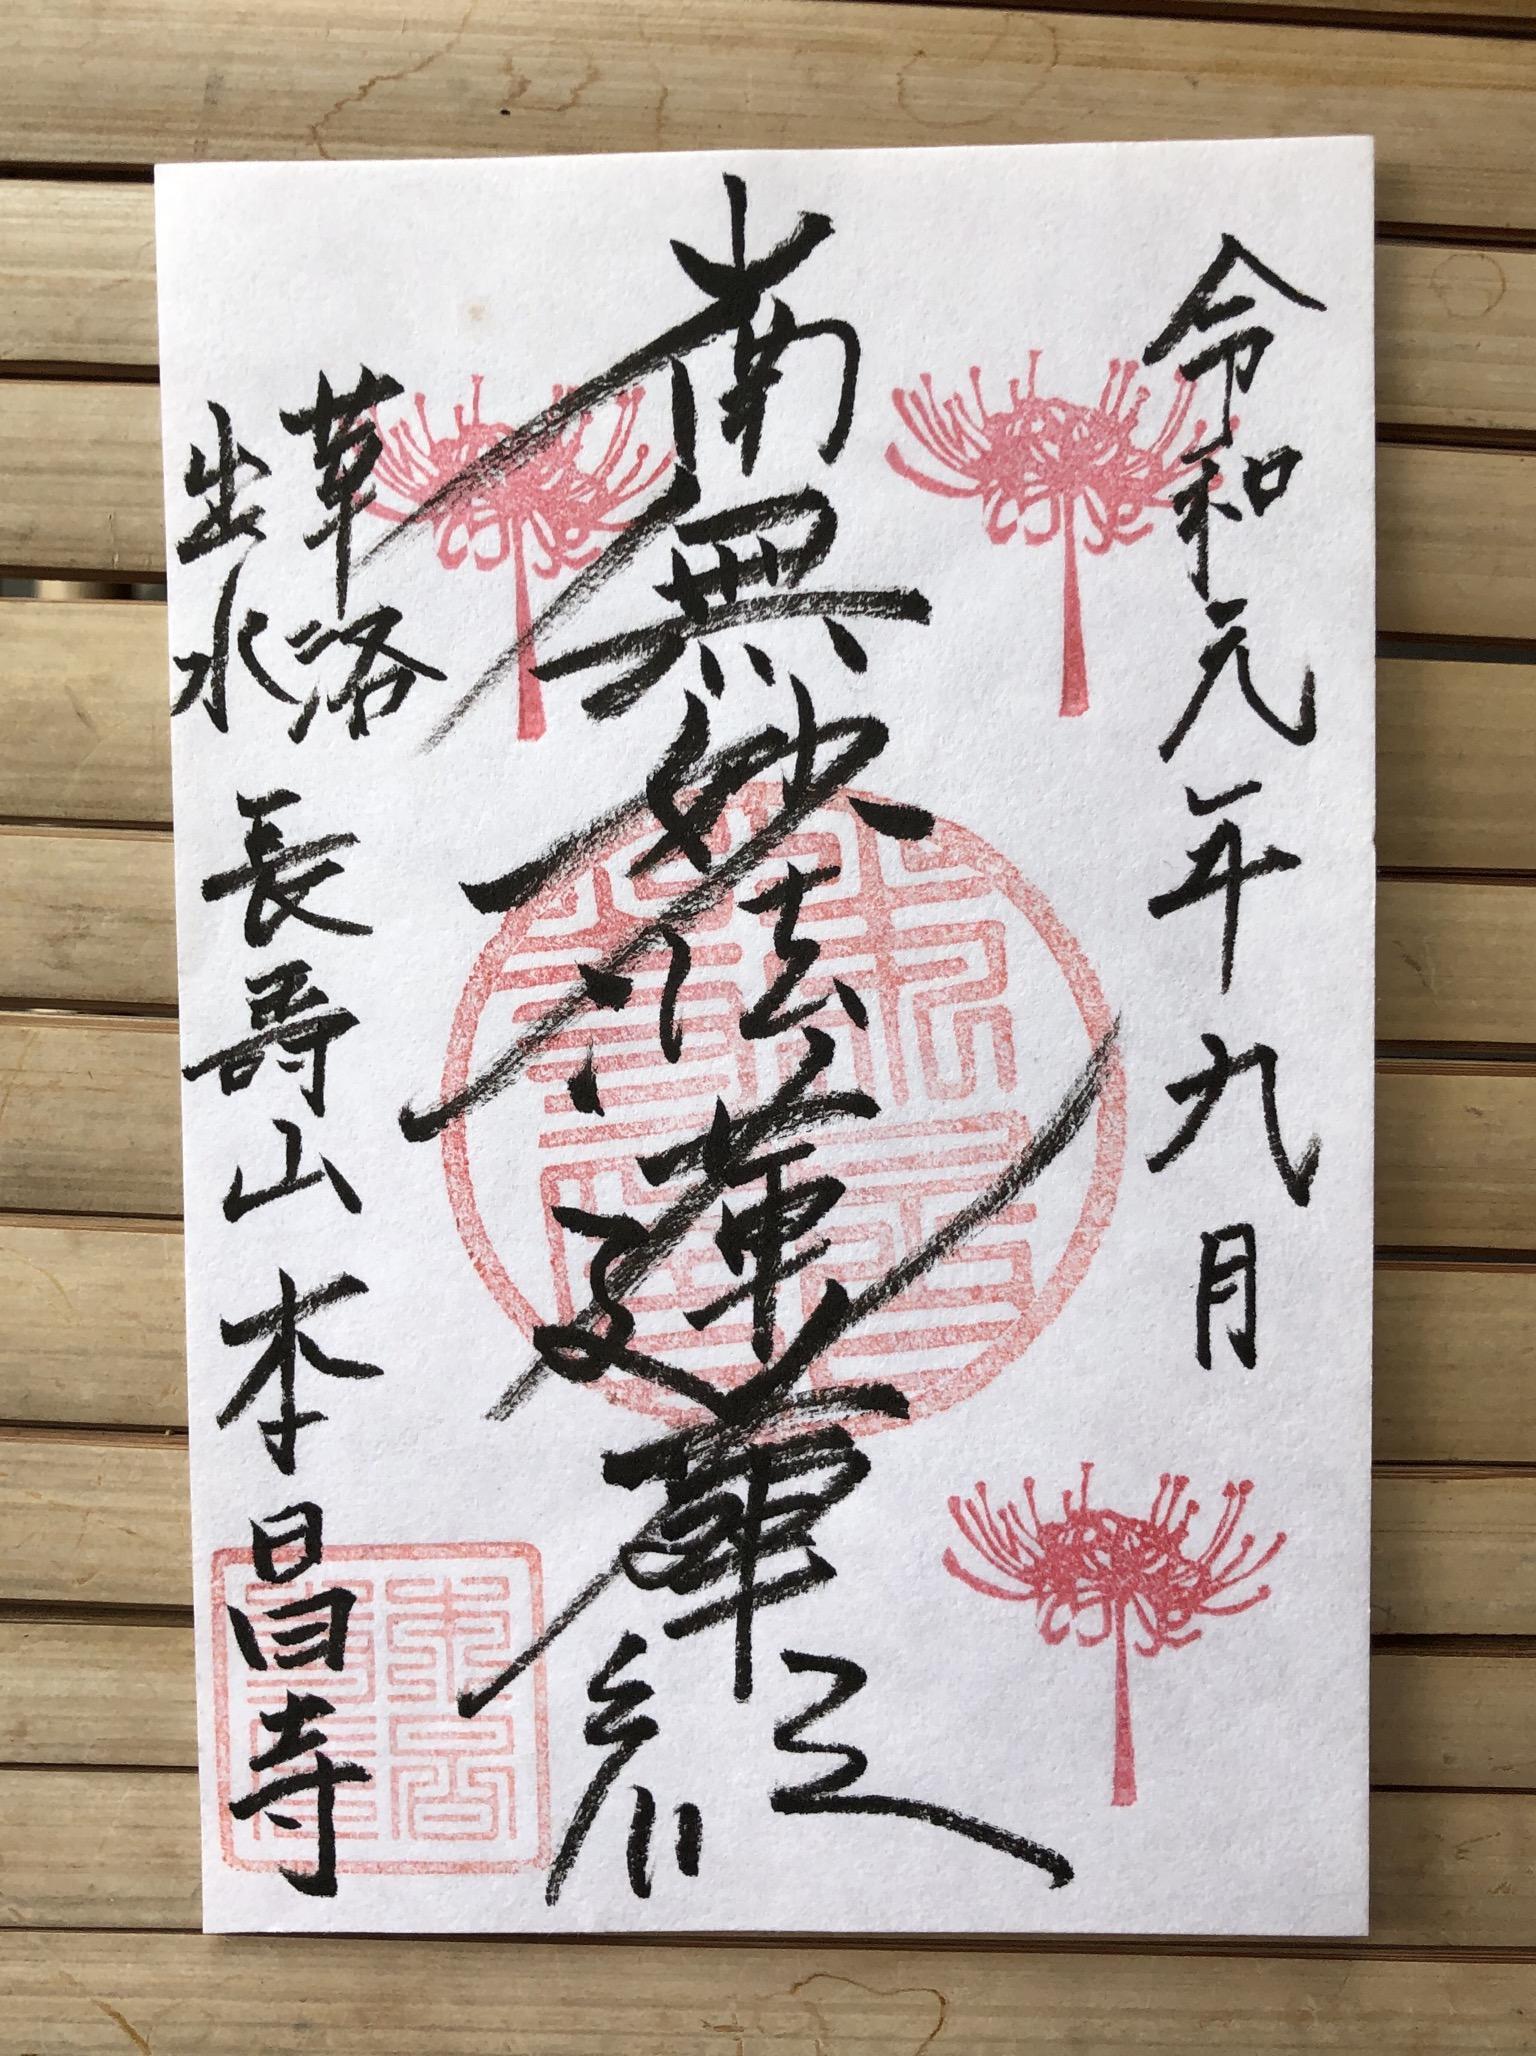 令和元年九月
南無妙法蓮華経
草洛
出水
長壽山 本昌寺